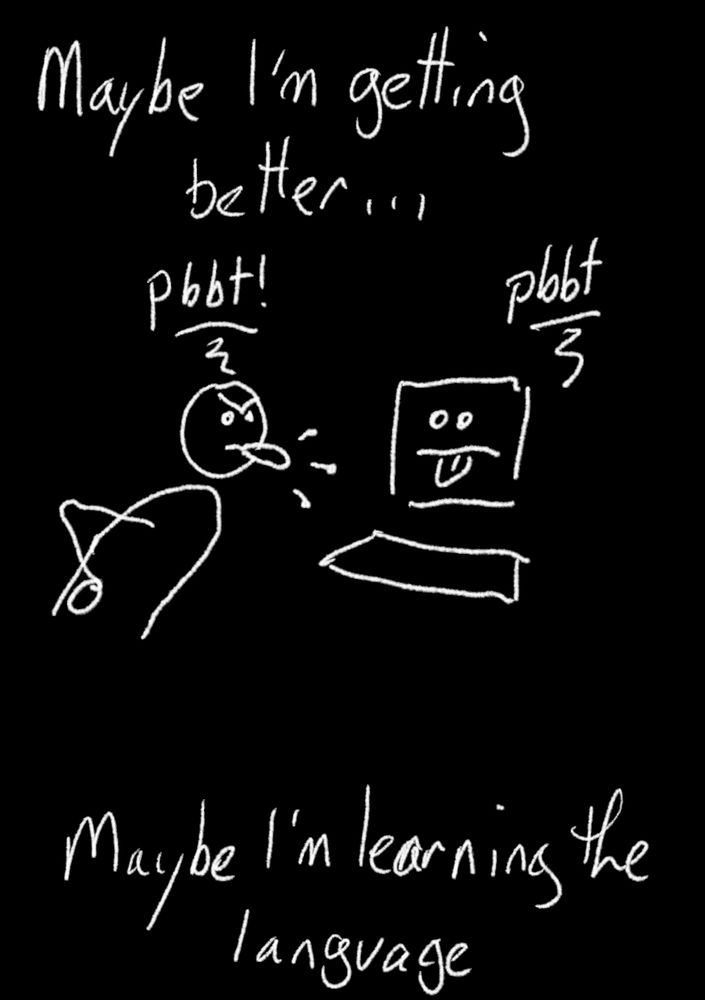 Maybe I'm getting
better...
pbbt!
pbbt
Maybe I'm learning the
language